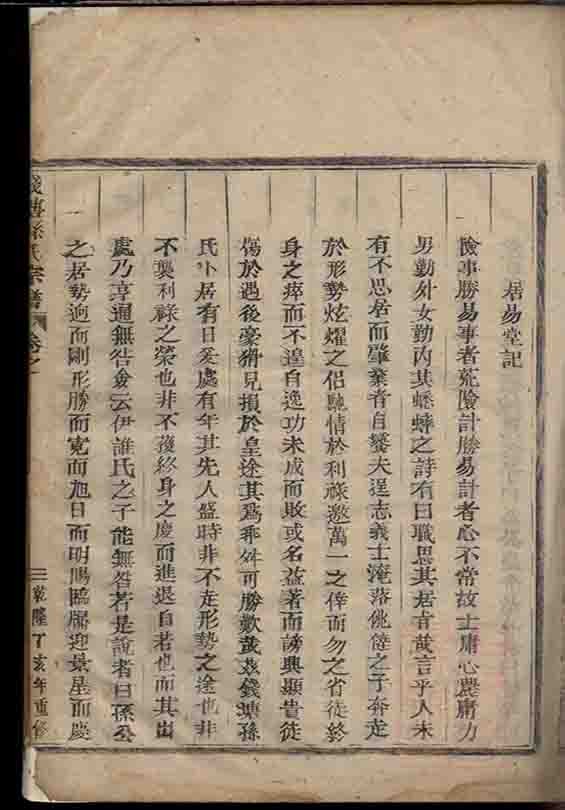 居易堂記
險事勝易事者薨險計勝易計者心不常故士庸心農庸力
男勤外女勤內其蟋蟀之詩有曰職思其居旨哉言乎人未
有不思居而肇棄者自饕夫逞志義士淹落佻㒓之子奔走
於形勢炫燿之侶馳情於利祿邀萬一之倖而勿之省徒終
身之瘁而不遑自逸功未成而敗或名益著而謗興顯貴徒
傷於遇後豪猾見損於皇途其爲乖舛可勝歎哉茲錢塘孫
氏卜居有日爰處有年其先人盛時非不走形勢之途也非
不襲利祿之榮也非不獲終身之慶而進退自若也而其出
處乃淳通無咎僉云伊誰氏之子能無咎若是說者曰孫公
之居勢逈而剛形勝而寬而旭日而明賜臨牖迎景星而慶
錢塘孫氏宗譜
卷之一
乾隆丁亥年重修